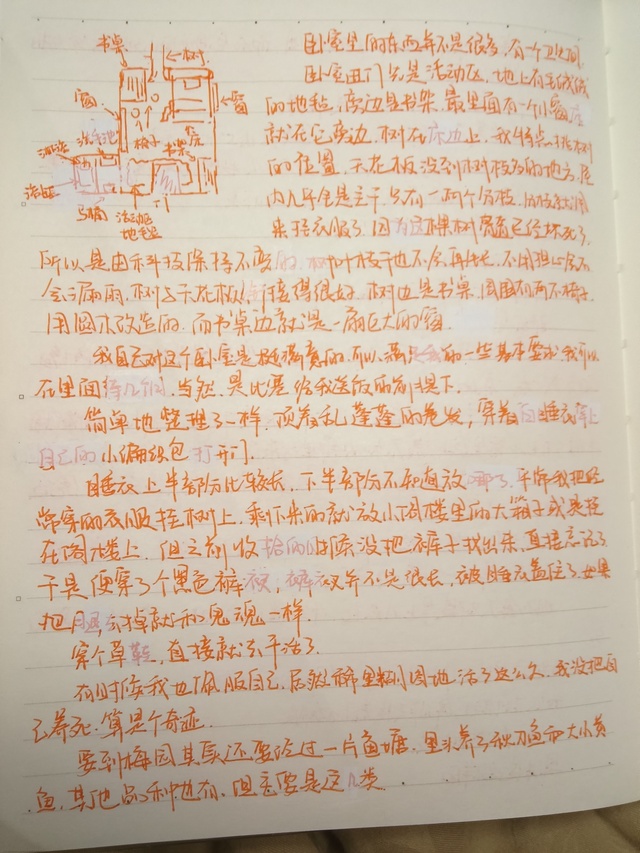 书桌
树
窗
窗
床
洗手池
椅子
书架
淋浴
浴缸
马桶
活动区
地毯
卧室里的东西并不是很多，有一个卫生间，
卧室进门先是活动区，地上有毛绒绒
的地毯，旁边是书架，最里面有一个小窗，床
就在它旁边，树在床边上，我特意挑树
的位置，天花板没到树枝多的地方，屋
内几乎全是主干，只有一两个分枝，
来挂衣服了，因为这棵树质量已经坏死了，
所以是由科技保持不变的，树叶枝干也不会再长，不用担心会不
会漏雨，树与天花板接得很好，树边是书桌，周围有两个椅子，
用圆木改造的，而书桌边就是一扇巨大的窗。
我自己对这个卧室是挺满意的，可以满足我的一些基本要求，我可以
在里面待几个月，当然，是比赛给我送饭的前提下。
简单地整理了一样，顶着乱蓬蓬的卷发，穿着白睡衣穿上
自己的小编织包打开门。
睡衣上半部分比较长，下半部分不知道放哪了，平常我把经
常穿的衣服挂树上，剩下来的就放小阁楼里的大箱子或是挂
在阁楼上，但之前收拾的时候没把裤子找出来，直接忘记了
于是便穿了个黑色裤衩，裤衩并不是很长，被睡衣盖住了，如果
把腿去掉就和鬼魂一样。
穿个草鞋，直接就去干活了。
有时候我也佩服自己，居然稀里糊涂地活了这么久，我没把自
己养死，算是个奇迹。
要到梅园其实还要经过一片鱼塘，里头养了秋刀鱼和大小黄
鱼，其他品种也有，但主要是这几类